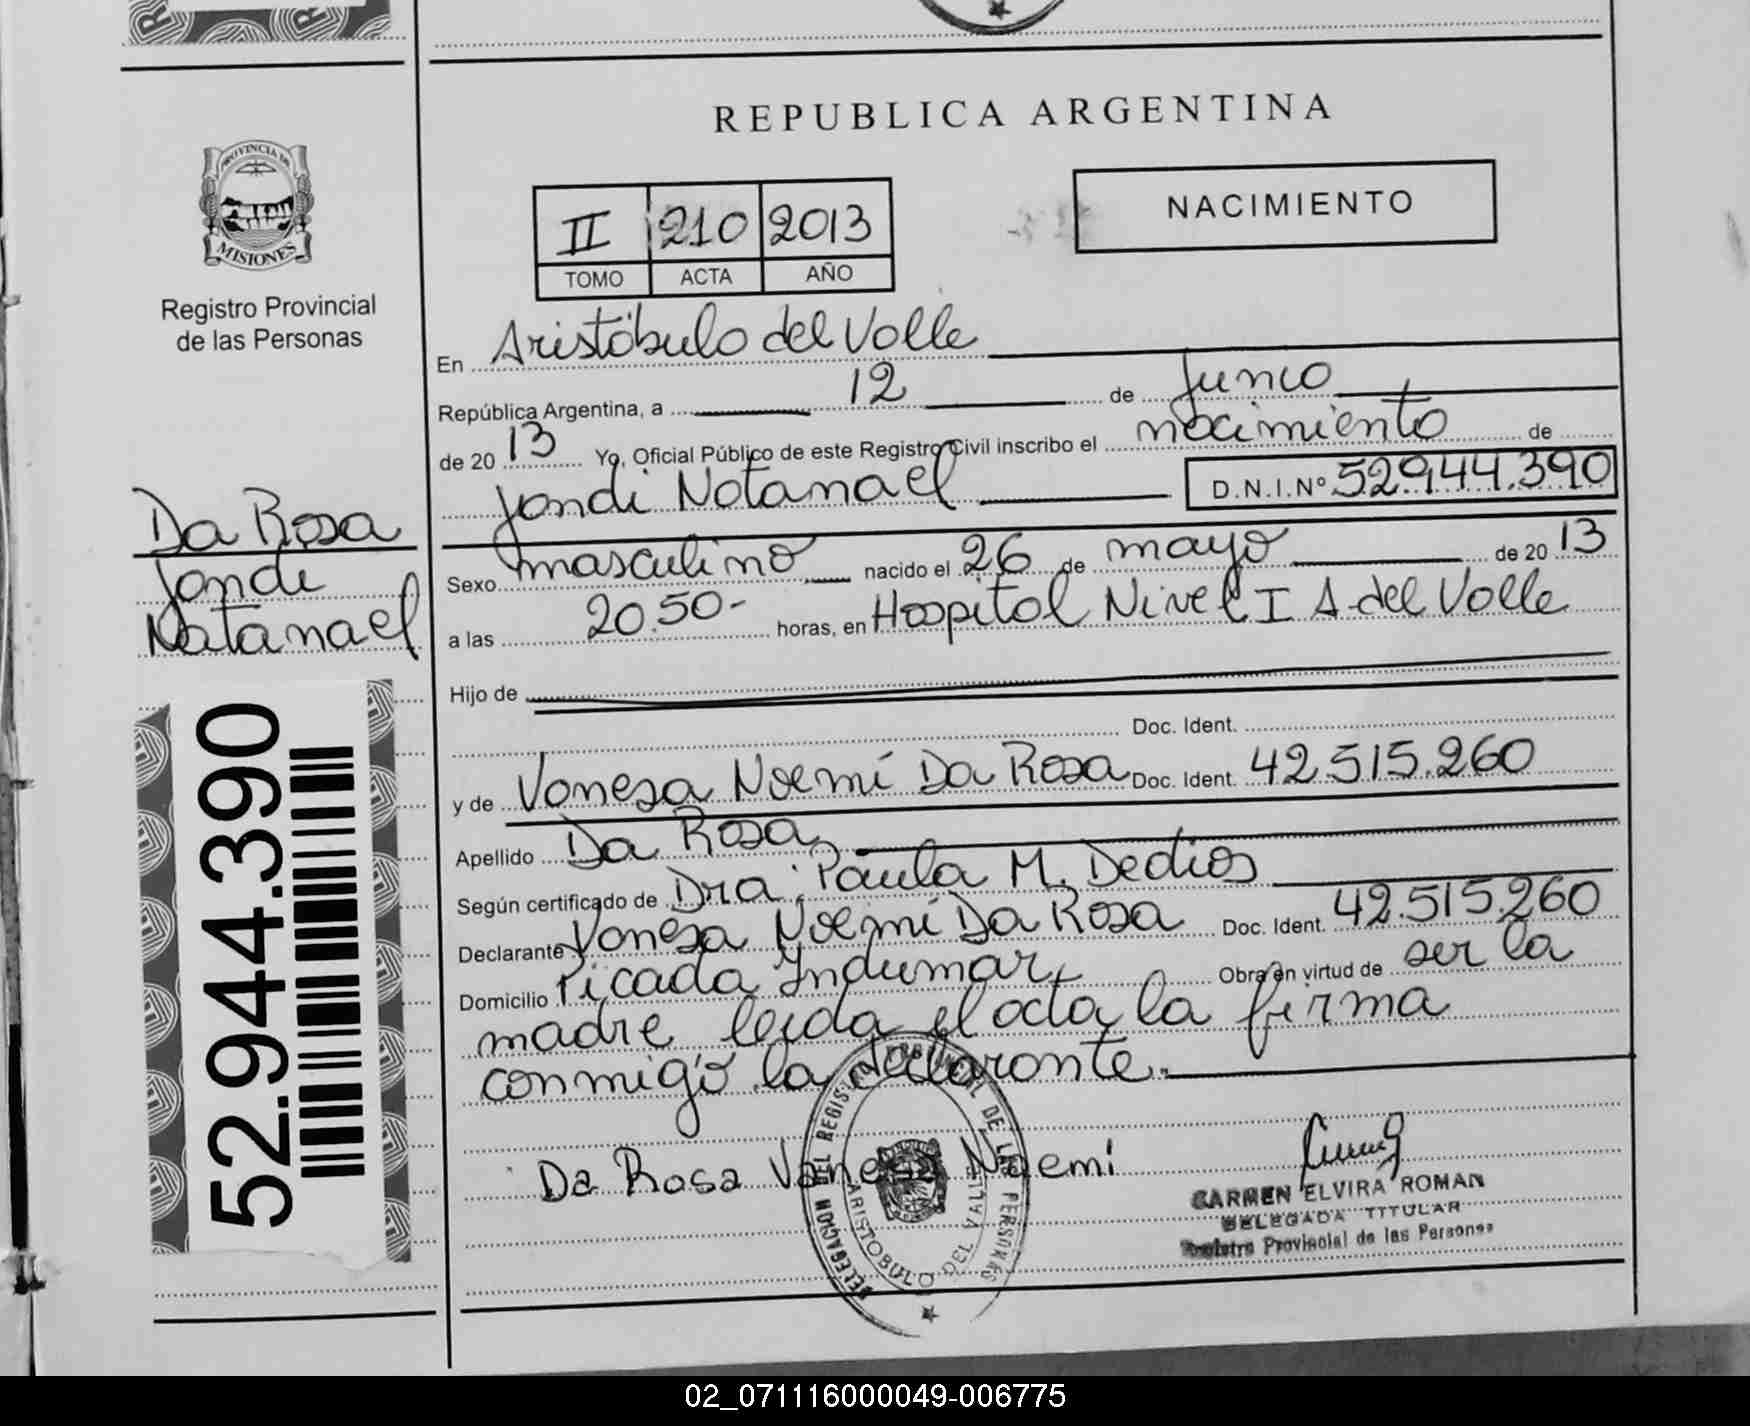 REPUBLICA ARGENTINA
PROVINCIA DE
MISIONES
Registro Provincial
de las Personas
NACIMIENTO
II 210 2013
TOMO ACTA AÑO
En Aristóbulo del Valle
República Argentina, a 12 de Junio
de 20 13 Yo, Oficial Público de este Registro Civil inscribo el nacimiento de
Jandi Natanael D.N.I.Nº 52.944.390
Sexo masculino nacido el 26 de mayo de 20 13
a las 20.50- horas, en Hospital Nivel I A. del Valle
Hijo de
Doc. Ident.
y de Vanesa Noemí Da Rosa Doc. Ident. 42.515.260
Apellido Da Rosa
Según certificado de Dra. Paula M. Dedios
Declarante Vanesa Noemí Da Rosa Doc. Ident. 42.515.260
Domicilio Picada Indumar Obra en virtud de ser la
madre leida el acta la firma
conmigo la declarante.
Da Rosa Vanesa Noemi
CARMEN ELVIRA ROMAN
DELEGADA TITULAR
Registro Provincial de las Personas
DELEGACION DEL REGISTRO PROVINCIAL DE LAS PERSONAS
ARISTOBULO DEL VALLE
Da Rosa
Jandi
Natanael
52.944.390
02_071116000049-006775